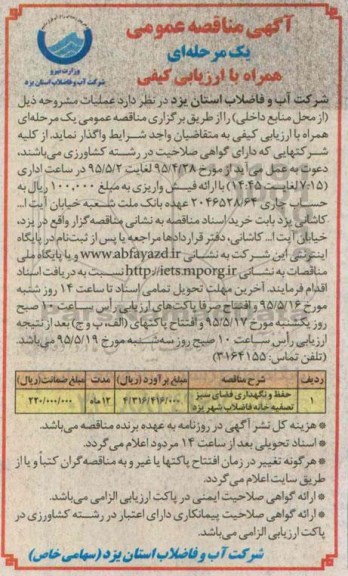 آگهی مناقصه عمومی
یک مرحله‌ای
همراه با ارزیابی کیفی
وزارت نیرو
شرکت آب و فاضلاب استان یزد
شرکت آب و فاضلاب استان یزد در نظر دارد عملیات مشروحه ذیل
(از محل منابع داخلی) را از طریق برگزاری مناقصه عمومی یک مرحله‌ای
همراه با ارزیابی کیفی به متقاضیان واجد شرایط واگذار نماید. از کلیه
شرکتهایی که دارای گواهی صلاحیت در رشته کشاورزی می‌باشند،
دعوت به عمل می آید از مورخ ۹۵/۴/۲۸ لغایت ۹۵/۵/۲ در ساعت اداری
(۷:۱۵ لغایت ۱۴:۴۵) با ارائه فیش واریزی به مبلغ ۱۰۰,۰۰۰ ریال به
حساب جاری ۲۰۴۶۵۲۸۶۴ عهده بانک ملت شعبه خیابان آیت ا...
کاشانی یزد بابت خرید اسناد مناقصه به نشانی مناقصه‌گزار واقع در یزد،
خیابان آیت ا... کاشانی، دفتر قراردادها مراجعه یا پس از ثبت‌نام در پایگاه
اینترنتی این شرکت به نشانی www.abfayazd.ir و یا پایگاه ملی
مناقصات به نشانی http://iets.mporg.ir نسبت به دریافت اسناد
اقدام فرمایند. آخرین مهلت تحویل تمامی اسناد تا ساعت ۱۴ روز شنبه
مورخ ۹۵/۵/۱۶ و افتتاح صرفا پاکت‌های ارزیابی رأس ساعت ۱۰ صبح
روز یکشنبه مورخ ۹۵/۵/۱۷ و افتتاح پاکتهای (الف، ب و ج) بعد از نتیجه
ارزیابی رأس ساعت ۱۰ صبح روز سه‌شنبه مورخ ۹۵/۵/۱۹ می‌باشد.
(تلفن تماس: ۳۱۶۴۱۵۵)
ردیف شرح مناقصه مبلغ برآورد (ریال) مدت مبلغ ضمانت(ریال)
۱ حفظ و نگهداری فضای سبز تصفیه خانه فاضلاب شهر یزد ۴/۳۱۶/۴۱۶/۰۰۰ ۱۲ ماه ۲۲۰/۰۰۰/۰۰۰
* هزینه کل نشر آگهی در روزنامه به عهده برنده مناقصه می‌باشد.
* اسناد تحویلی بعد از ساعت ۱۴ مردود اعلام می‌گردد.
* هرگونه تغییر در زمان افتتاح پاکتها یا غیر و به مناقصه‌گران کتباً و یا از
طریق سایت اعلام می‌گردد.
* ارائه گواهی صلاحیت ایمنی در پاکت ارزیابی الزامی می‌باشد.
* ارائه گواهی صلاحیت پیمانکاری دارای اعتبار در رشته کشاورزی در
پاکت ارزیابی الزامی می‌باشد.
شرکت آب و فاضلاب استان یزد (سهامی خاص)